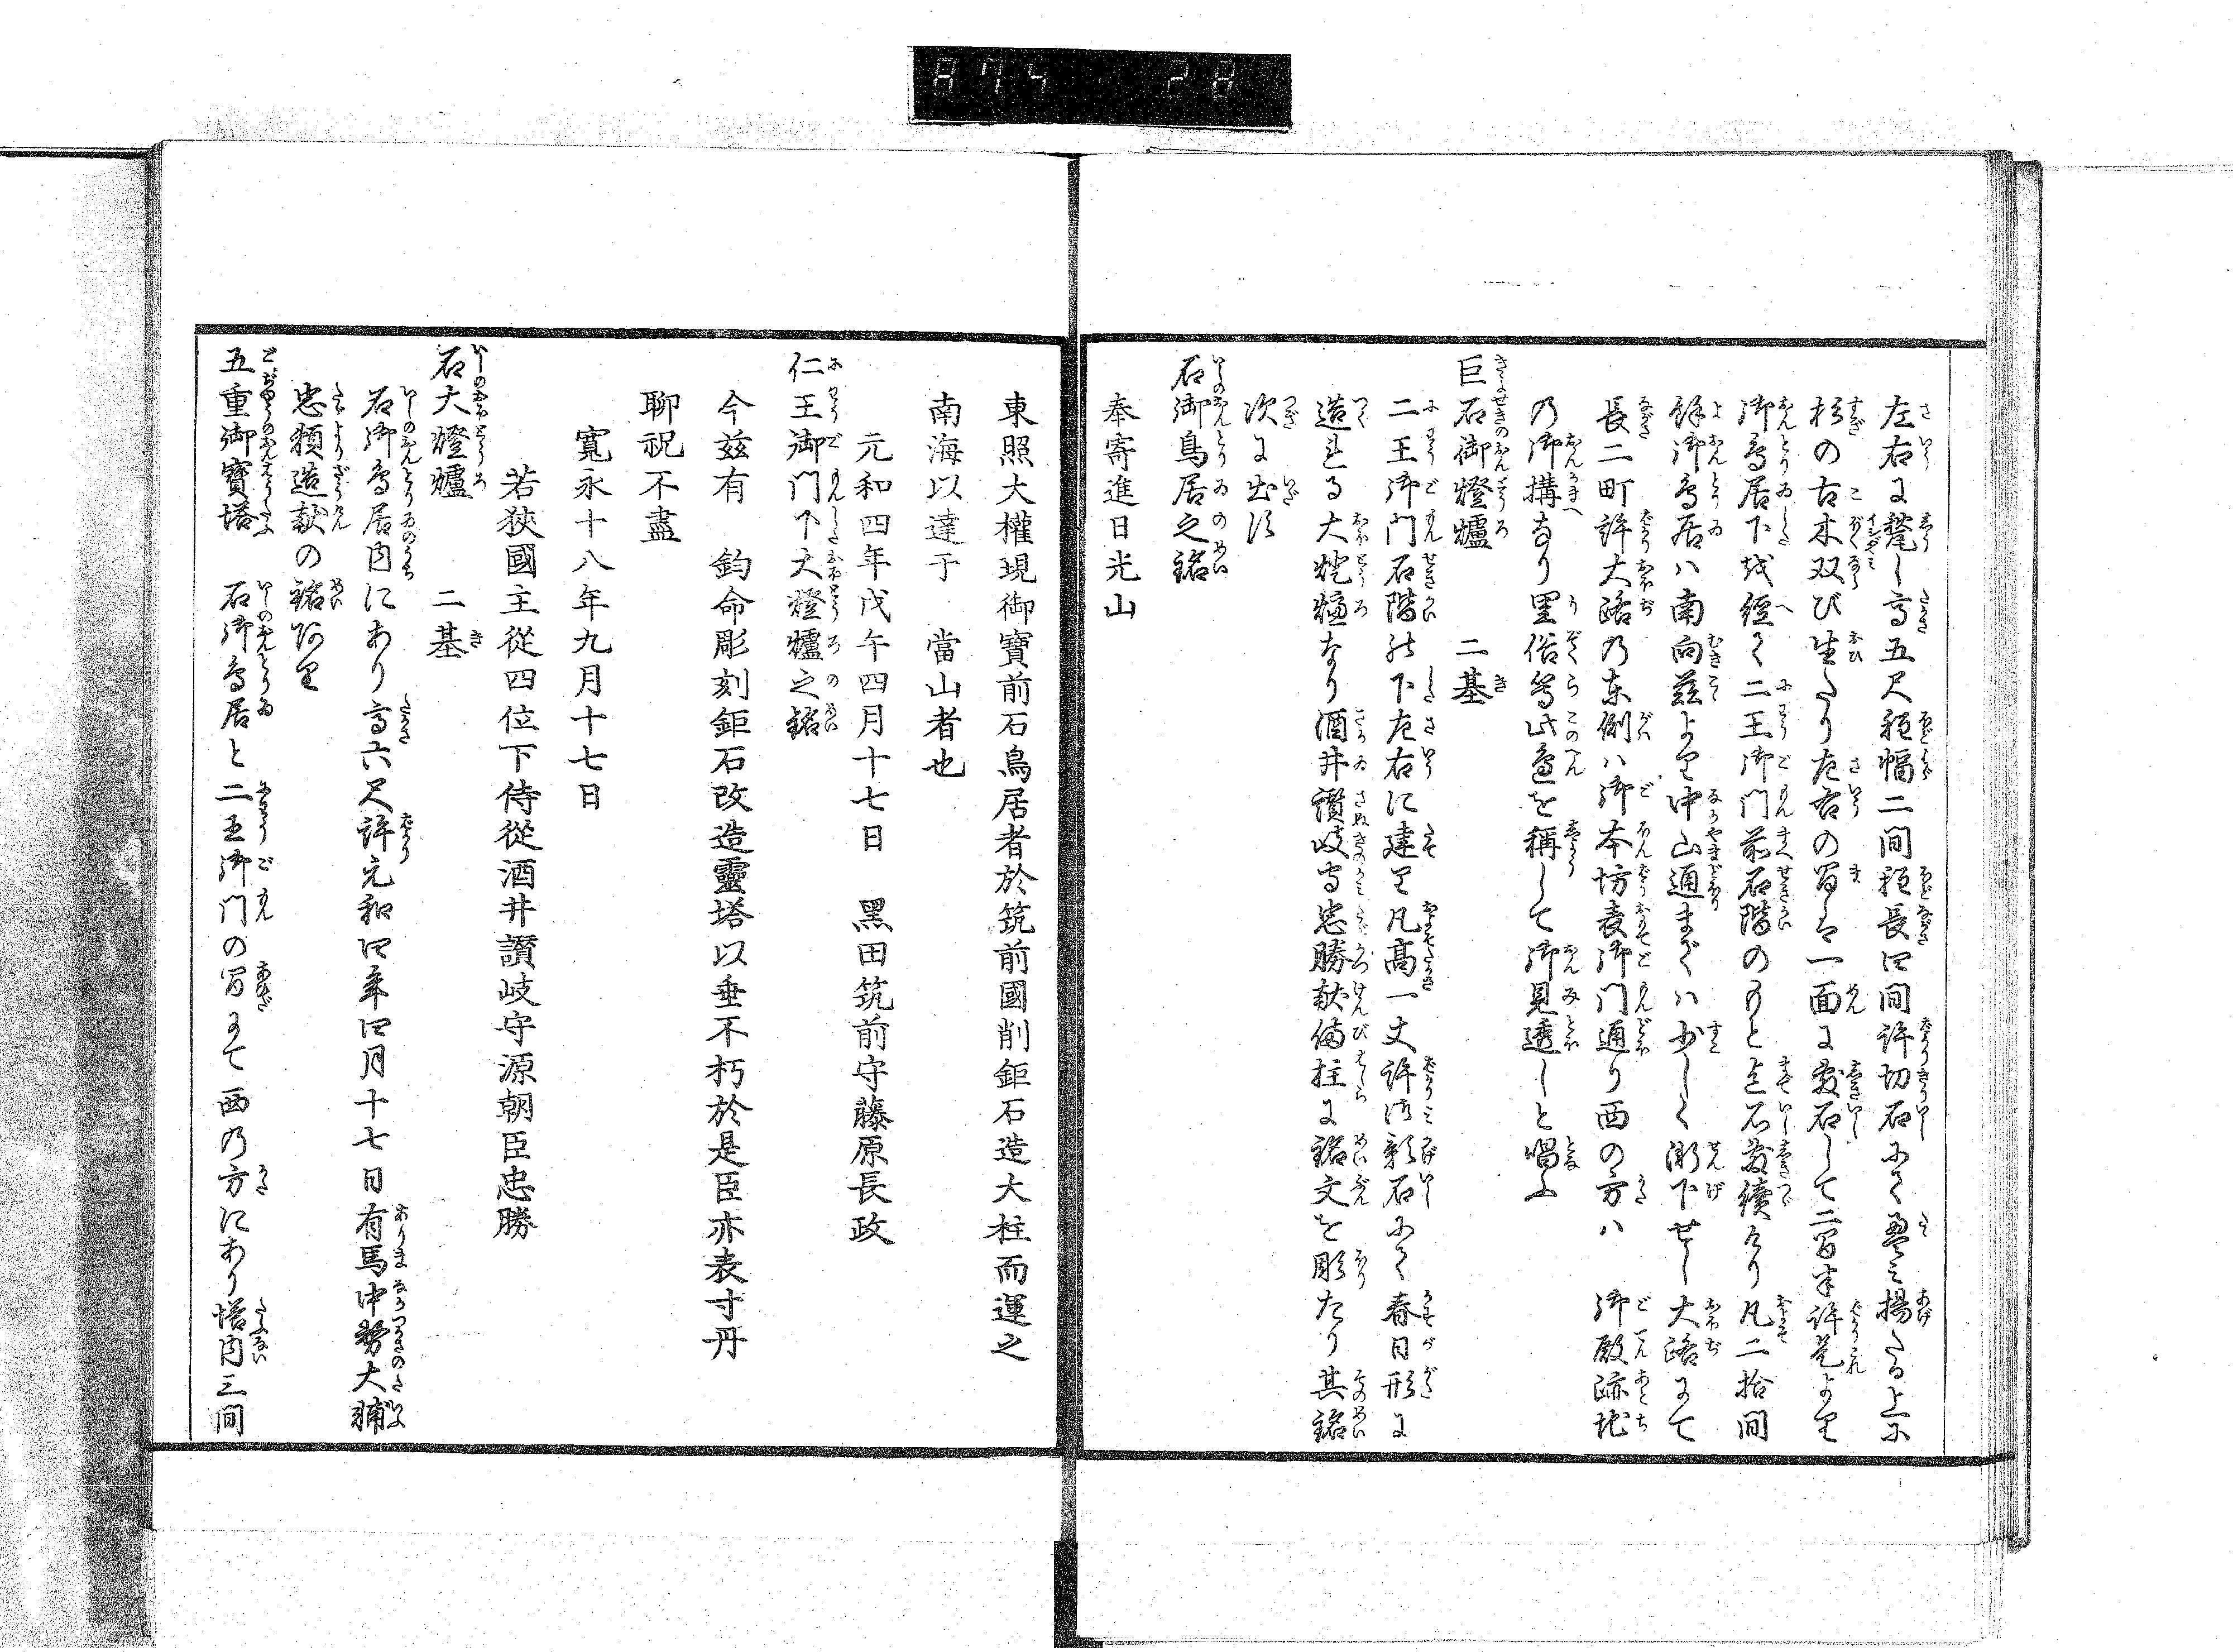 874 28
左右に甃し高五尺程幅二間程長四間許切石にて畳み揚たる上に
杉の古木双び生たり左右の間は一面に敷石して二間半許是より
御鳥居下を経て二王御門前石階のもと迄石敷続けり凡二拾間
餘御鳥居ハ南向茲より中山通まがくハ少しく漸下せし大路にて
長二町許大路の東側ハ御本坊表御門通り西の方ハ 御殿跡地
の御搆なり里俗等此辺を稱して御見透しと唱ふ
巨石御燈爐 二基
二王御門石階の下左右に建り凡高一丈許御影石にて春日形に
造れる大燈爐なり酒井讃岐守忠勝献備柱に銘文を彫たり其銘
次に出す
石御鳥居之銘
奉寄進日光山
東照大權現御寶前石鳥居者於筑前國削鉅石造大柱而運之
南海以達于 當山者也
元和四年戊午四月十七日 黑田筑前守藤原長政
仁王御門下大燈爐之銘
今茲有 鈞命彫刻鉅石改造靈塔以垂不朽於是臣亦表寸丹
聊祝不盡
寬永十八年九月十七日
若狹國主從四位下侍從酒井讚岐守源朝臣忠勝
石大燈爐 二基
石御鳥居内にあり高六尺許元和四年四月十七日有馬中務大輔
忠頼造献の銘あり
五重御寶塔 石御鳥居と二王御門の間にて西の方にあり塔内三間